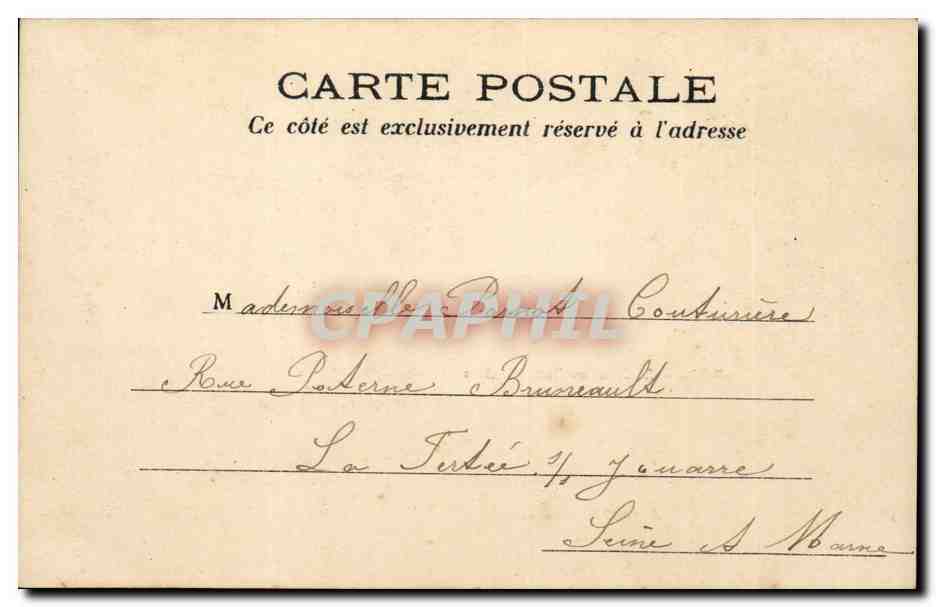 CARTE POSTALE
Ce côté est exclusivement réservé à l'adresse
Mademoiselle Couturière
CPAPHIL
Rue Poterne Bruneault
La Fertée s/s Jouarre
Seine et Marne